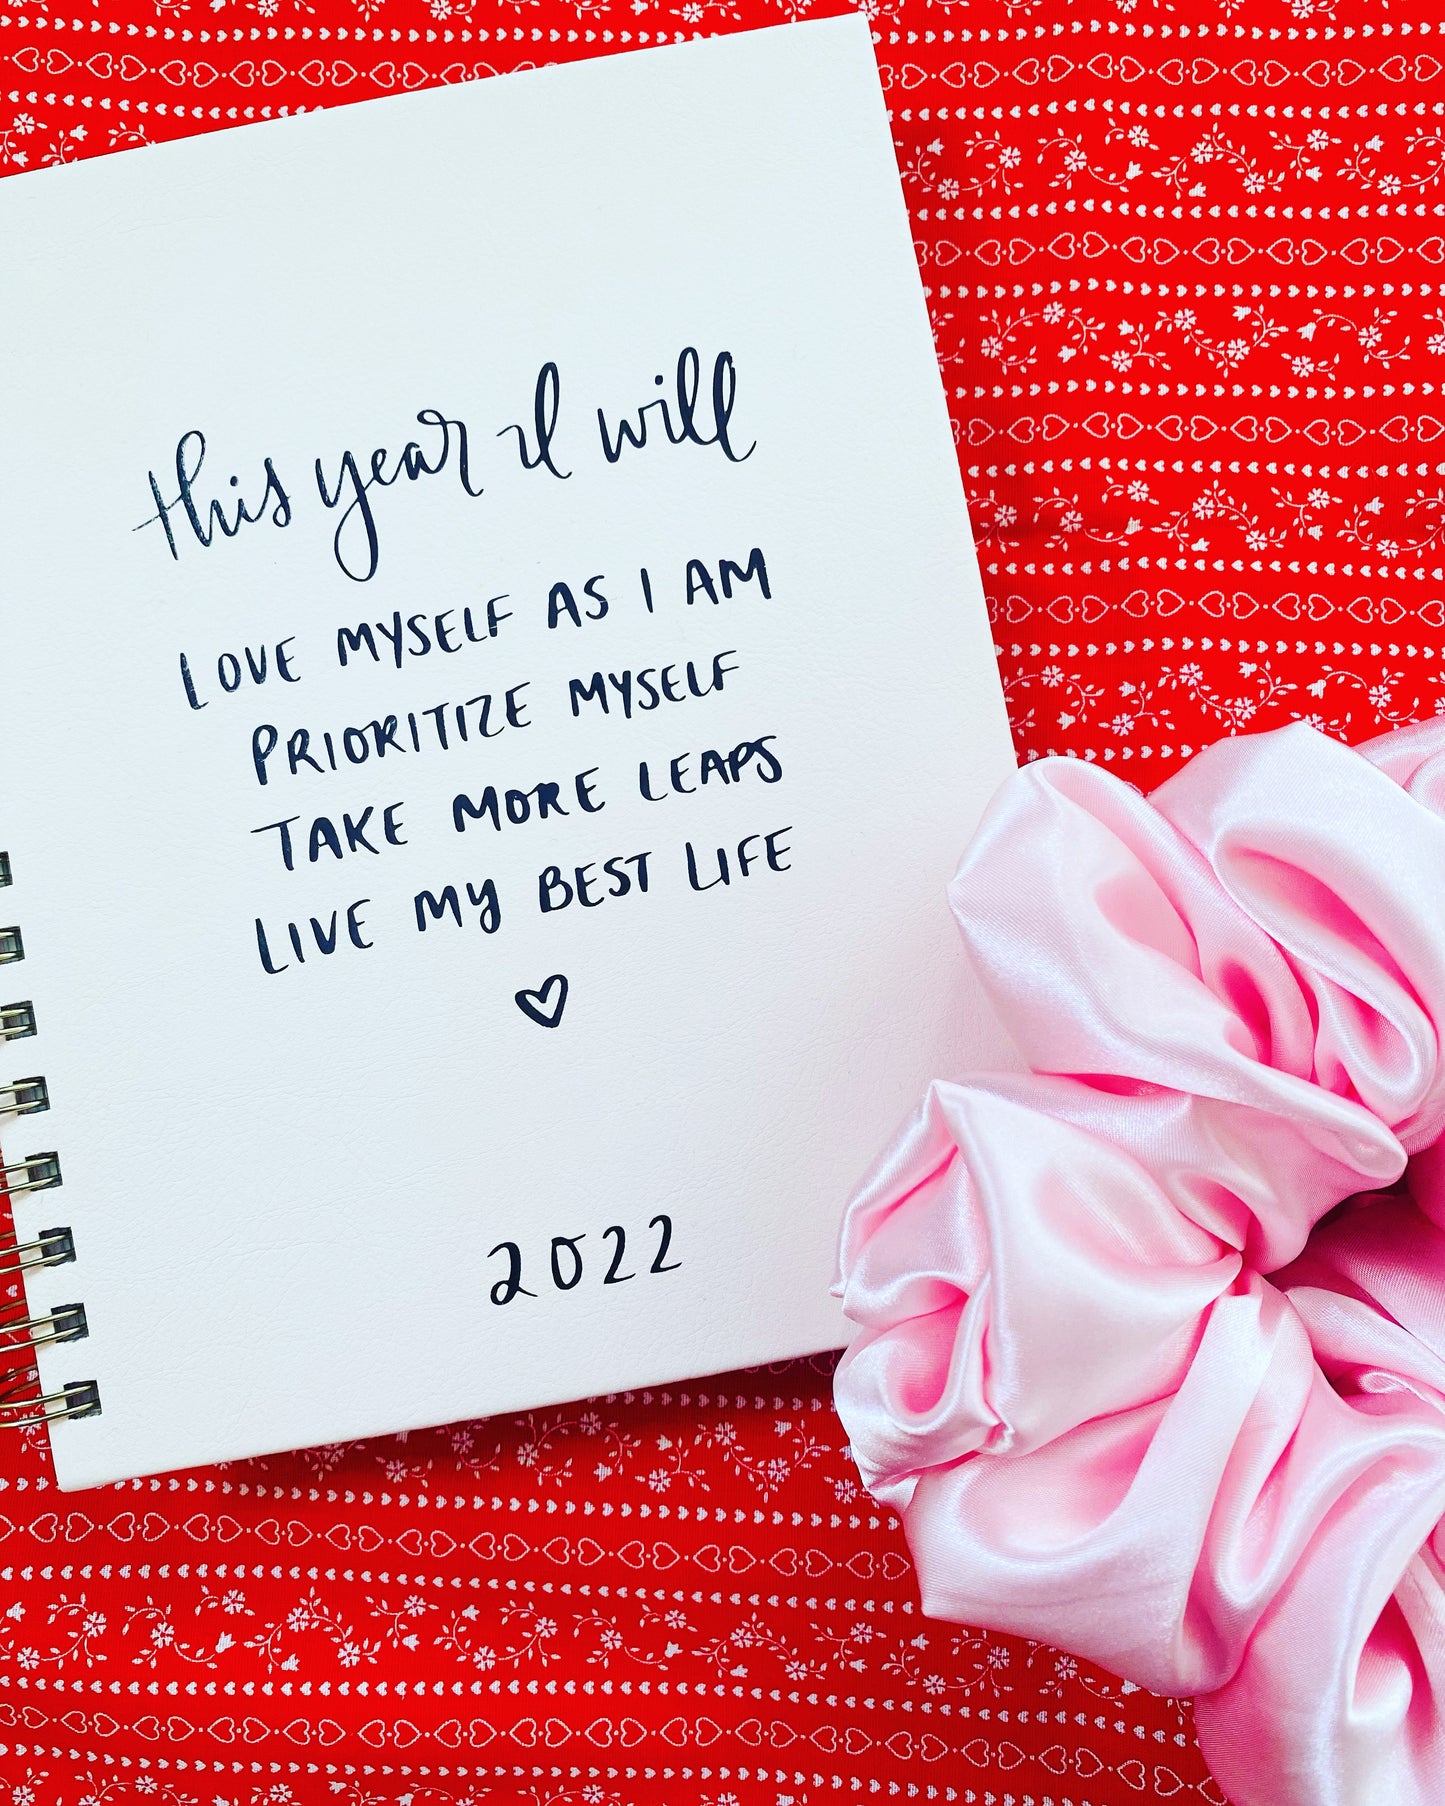 this year I will
LOVE MYSELF AS I AM
PRIORITIZE MYSELF
TAKE MORE LEAPS
LIVE MY BEST LIFE
2022